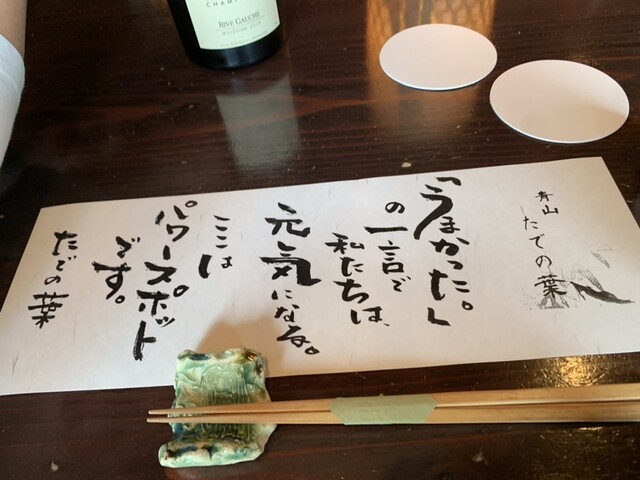 CHAMP
RIVE GAUCHE
青山
たでの葉
「うまかった。」
の一言で
私たちは、
元気になる。
ここは
パワースポット
です。
たでの葉